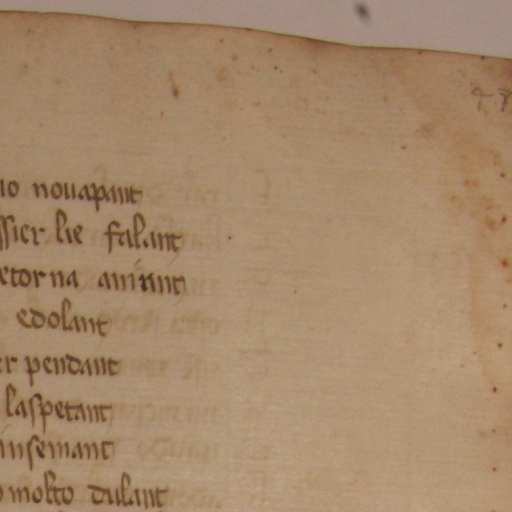 uo nouapant
ssier lie falant
etorna auirant
edolant
er pendant
laspetant
insemant
o molto dulant